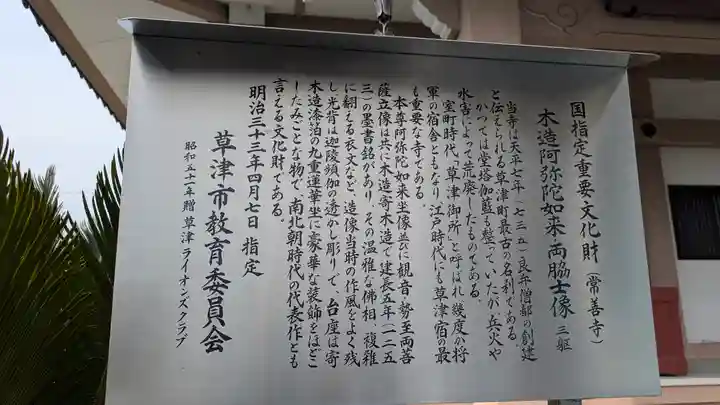 国指定重要文化財（常善寺）
木造阿弥陀如来両脇士像 三躯
当寺は天平七年（七三五）良弁僧都の創建
と伝えられる草津町最古の名刹である。
かつては堂塔伽藍も整っていたが、兵火や
水害によって荒廃したものである。
室町時代、「草津御所」と呼ばれ幾度か将
軍の宿舎ともなり、江戸時代にも草津宿の最
も重要な寺である。
本尊阿弥陀如来坐像並びに観音・勢至両菩
薩立像は共に木造寄木造で建長五年（一二五
三）の墨書銘があり、その温雅な佛相、複雑
に翻える衣文など、造像当時の作風をよく残
し、光背は迦陵頻伽の透かし彫りで、台座は寄
木造漆箔の九重蓮華坐に豪華な装飾をほどこ
したみごとな物で、南北朝時代の代表作とも
言える文化財である。
明治三十三年四月七日 指定
草津市教育委員会
昭和五十一年贈 草津ライオンズクラブ